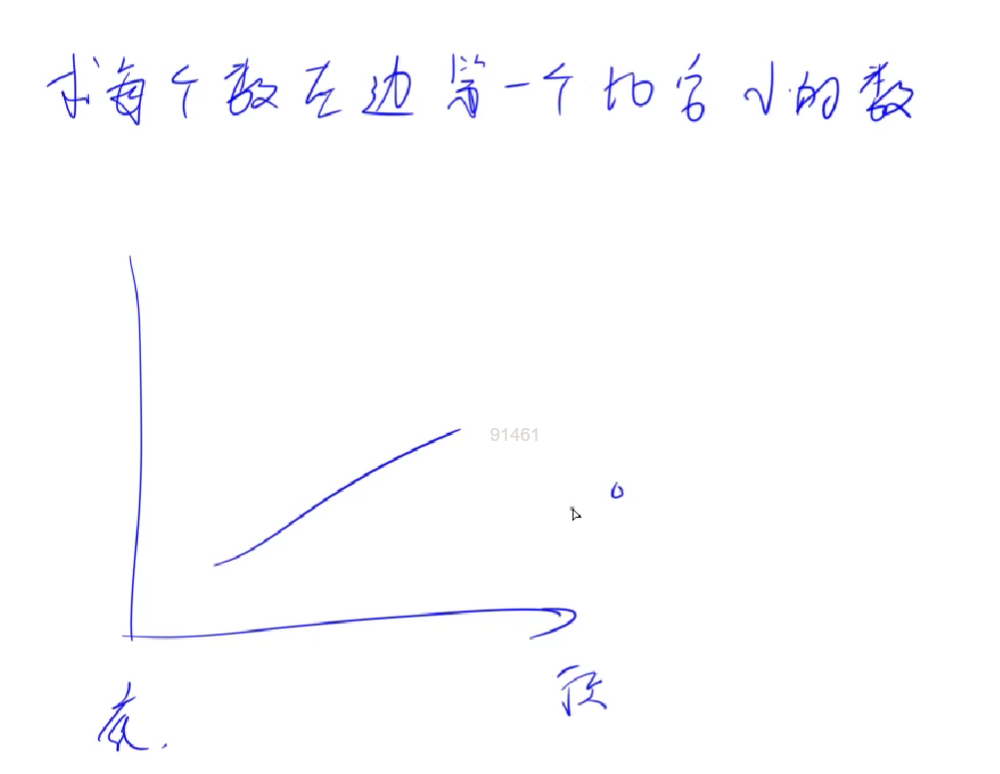 求每个数左边第一个比它小的数
91461
底
顶